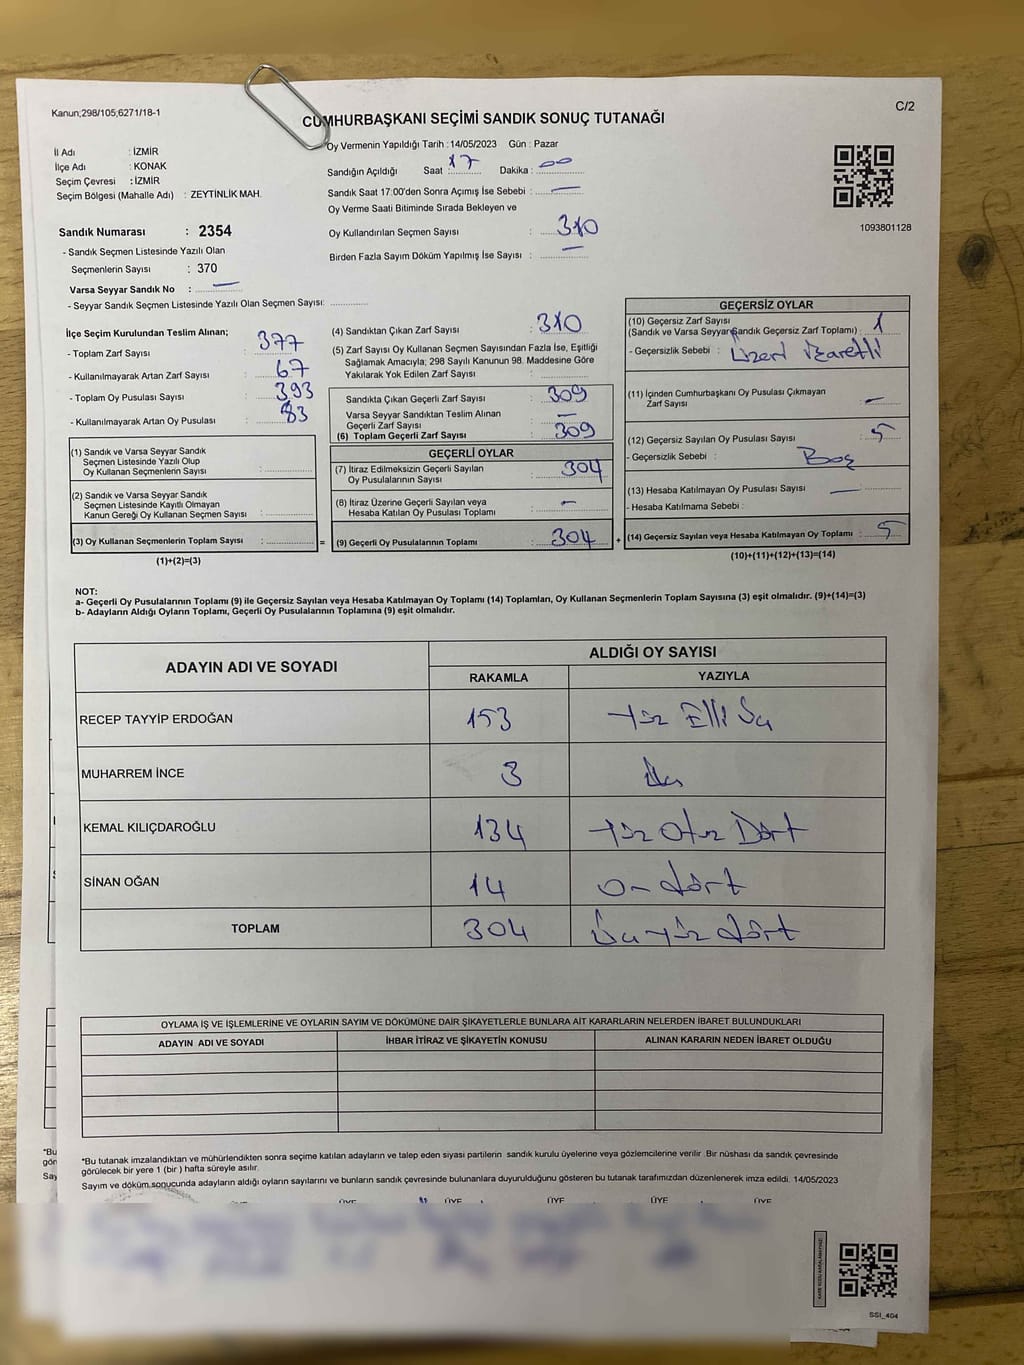 Kanun;298/105;6271/18-1
C/2
CUMHURBAŞKANI SEÇİMİ SANDIK SONUÇ TUTANAĞI
Oy Vermenin Yapıldığı Tarih : 14/05/2023 Gün : Pazar
İl Adı : İZMİR
İlçe Adı : KONAK
Seçim Çevresi : İZMİR
Seçim Bölgesi (Mahalle Adı) : ZEYTİNLİK MAH.
Sandığın Açıldığı Saat 17 Dakika : 00
Sandık Saat 17:00'den Sonra Açımış İse Sebebi : —
Oy Verme Saati Bitiminde Sırada Bekleyen ve
Oy Kullandırılan Seçmen Sayısı : 310
Birden Fazla Sayım Döküm Yapılmış İse Sayısı : —
1093801128
Sandık Numarası : 2354
- Sandık Seçmen Listesinde Yazılı Olan
Seçmenlerin Sayısı : 370
Varsa Seyyar Sandık No : —
- Seyyar Sandık Seçmen Listesinde Yazılı Olan Seçmen Sayısı:
İlçe Seçim Kurulundan Teslim Alınan;
- Toplam Zarf Sayısı : 377
- Kullanılmayarak Artan Zarf Sayısı : 67
- Toplam Oy Pusulası Sayısı : 393
- Kullanılmayarak Artan Oy Pusulası : 83
(1) Sandık ve Varsa Seyyar Sandık
Seçmen Listesinde Yazılı Olup
Oy Kullanan Seçmenlerin Sayısı :
(2) Sandık ve Varsa Seyyar Sandık
Seçmen Listesinde Kayıtlı Olmayan
Kanun Gereği Oy Kullanan Seçmen Sayısı :
(3) Oy Kullanan Seçmenlerin Toplam Sayısı : =
(1)+(2)=(3)
(4) Sandıktan Çıkan Zarf Sayısı : 310
(5) Zarf Sayısı Oy Kullanan Seçmen Sayısından Fazla İse, Eşitliği
Sağlamak Amacıyla; 298 Sayılı Kanunun 98. Maddesine Göre
Yakılarak Yok Edilen Zarf Sayısı :
Sandıkta Çıkan Geçerli Zarf Sayısı : 309
Varsa Seyyar Sandıktan Teslim Alınan
Geçerli Zarf Sayısı : —
(6) Toplam Geçerli Zarf Sayısı : 309
GEÇERLİ OYLAR
(7) İtiraz Edilmeksizin Geçerli Sayılan
Oy Pusulalarının Sayısı : 304
(8) İtiraz Üzerine Geçerli Sayılan veya
Hesaba Katılan Oy Pusulası Toplamı : —
(9) Geçerli Oy Pusulalarının Toplamı : 304 +
GEÇERSİZ OYLAR
(10) Geçersiz Zarf Sayısı
(Sandık ve Varsa Seyyar Sandık Geçersiz Zarf Toplamı) : 1
- Geçersizlik Sebebi : Üzeri işaretli
(11) İçinden Cumhurbaşkanı Oy Pusulası Çıkmayan
Zarf Sayısı : —
(12) Geçersiz Sayılan Oy Pusulası Sayısı : 5
- Geçersizlik Sebebi : Boş
(13) Hesaba Katılmayan Oy Pusulası Sayısı : —
- Hesaba Katılmama Sebebi :
(14) Geçersiz Sayılan veya Hesaba Katılmayan Oy Toplamı : 5
(10)+(11)+(12)+(13)=(14)
NOT:
a- Geçerli Oy Pusulalarının Toplamı (9) ile Geçersiz Sayılan veya Hesaba Katılmayan Oy Toplamı (14) Toplamları, Oy Kullanan Seçmenlerin Toplam Sayısına (3) eşit olmalıdır. (9)+(14)=(3)
b- Adayların Aldığı Oyların Toplamı, Geçerli Oy Pusulalarının Toplamına (9) eşit olmalıdır.
ADAYIN ADI VE SOYADI
ALDIĞI OY SAYISI
RAKAMLA YAZIYLA
RECEP TAYYİP ERDOĞAN 153 Yüz Elli Üç
MUHARREM İNCE 3 Üç
KEMAL KILIÇDAROĞLU 134 Yüz Otuz Dört
SİNAN OĞAN 14 On dört
TOPLAM 304 Üç yüz dört
OYLAMA İŞ VE İŞLEMLERİNE VE OYLARIN SAYIM VE DÖKÜMÜNE DAİR ŞİKAYETLERLE BUNLARA AİT KARARLARIN NELERDEN İBARET BULUNDUKLARI
ADAYIN ADI VE SOYADI İHBAR İTİRAZ VE ŞİKAYETİN KONUSU ALINAN KARARIN NEDEN İBARET OLDUĞU
*Bu tutanak imzalandıktan ve mühürlendikten sonra seçime katılan adayların ve talep eden siyasi partilerin sandık kurulu üyelerine veya gözlemcilerine verilir .Bir nüshası da sandık çevresinde
görülecek bir yere 1 (bir ) hafta süreyle asılır.
Sayım ve döküm sonucunda adayların aldığı oyların sayılarını ve bunların sandık çevresinde bulunanlara duyurulduğunu gösteren bu tutanak tarafımızdan düzenlenerek imza edildi. 14/05/2023
ÜYE ÜYE ÜYE ÜYE ÜYE
SSI_404